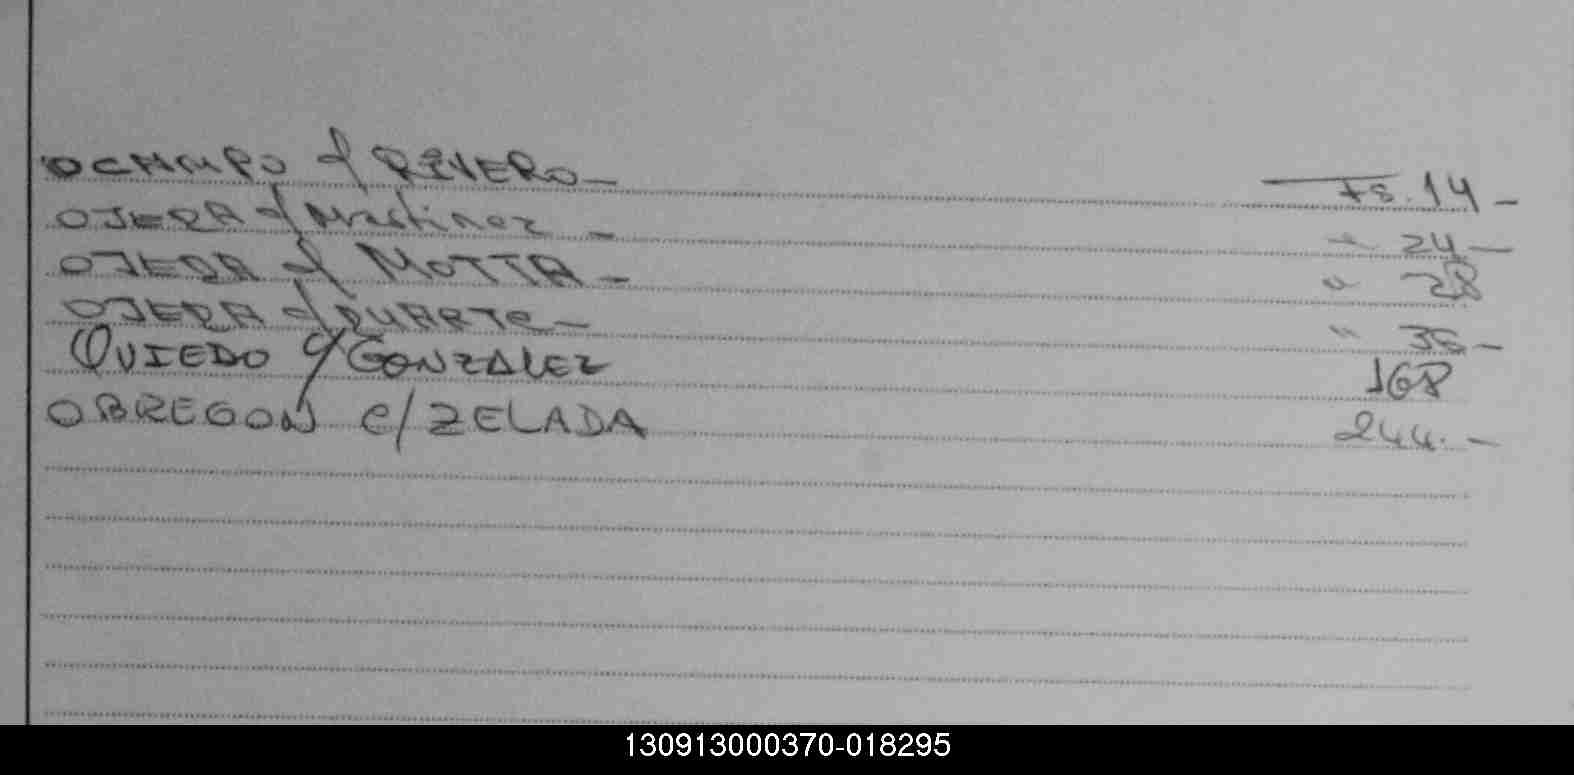 OCAMPO c/ RIVERO — Fs. 14 —
OJEDA c/ Martinez — " 24 —
OJEDA c/ MOTTA — " 28
OJEDA c/ DUARTE — " 36 —
OVIEDO c/ GONZALEZ 168
OBREGON c/ ZELADA 244. —
130913000370-018295